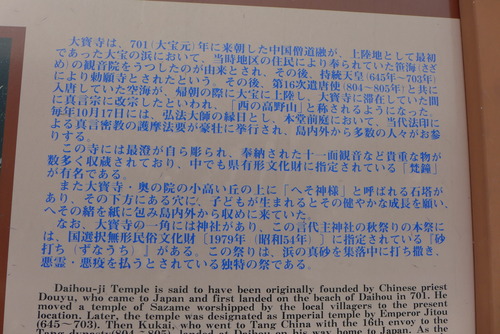 大寶寺は、701(大宝元)年に来朝した中国僧道融が、上陸地として最初
であった大宝の浜において、当時地区の住民により奉られていた笹海(さざ
め)の観音院をうつしたのが由来とされ、その後、持統天皇(645年~703年)
により勅願寺とされたという。その後、第16次遣唐使(804~805年)と共に
入唐していた空海が、帰朝の際に大宝に上陸し、大寶寺に滞在していた間
に真言宗に改宗したといわれ、「西の高野山」と称されるようになった。
毎年10月17日には、弘法大師の縁日とし、本堂前庭において、当代法印に
よる真言密教の護摩法要が豪壮に挙行され、島内外から多数の人々がお参
りする。
この寺には最澄が自ら彫られ、奉納された十一面観音など貴重な物が
数多く収蔵されており、中でも県有形文化財に指定されている「梵鐘」
が有名である。
また大寶寺・奥の院の小高い丘の上に「へそ神様」と呼ばれる石塔が
あり、その下方にある穴に、子どもが生まれるとその健やかな成長を願い、
へその緒を紙に包み島内外から収めに来ていた。
なお、大寶寺の一角には神社があり、この言代主神社の秋祭りの本祭に
は、国選択無形民俗文化財[1979年(昭和54年)]に指定されている「砂
打ち(ずなうち)」がある。この祭りは、浜の真砂を集落中に打ち撒き、
悪霊・悪疫を払うとされている独特の祭である。
Daihou-ji Temple is said to have been originally founded by Chinese priest
Douyu, who came to Japan and first landed on the beach of Daihou in 701. He
moved a temple of Sazame worshipped by the local villagers to the present
location. Later, the temple was designated as Imperial temple by Emperor Jitou
(645~703). Then Kukai, who went to Tang China with the 16th envoy to the
Tang dynasty(804~805), landed at Daihou on his way home to Japan